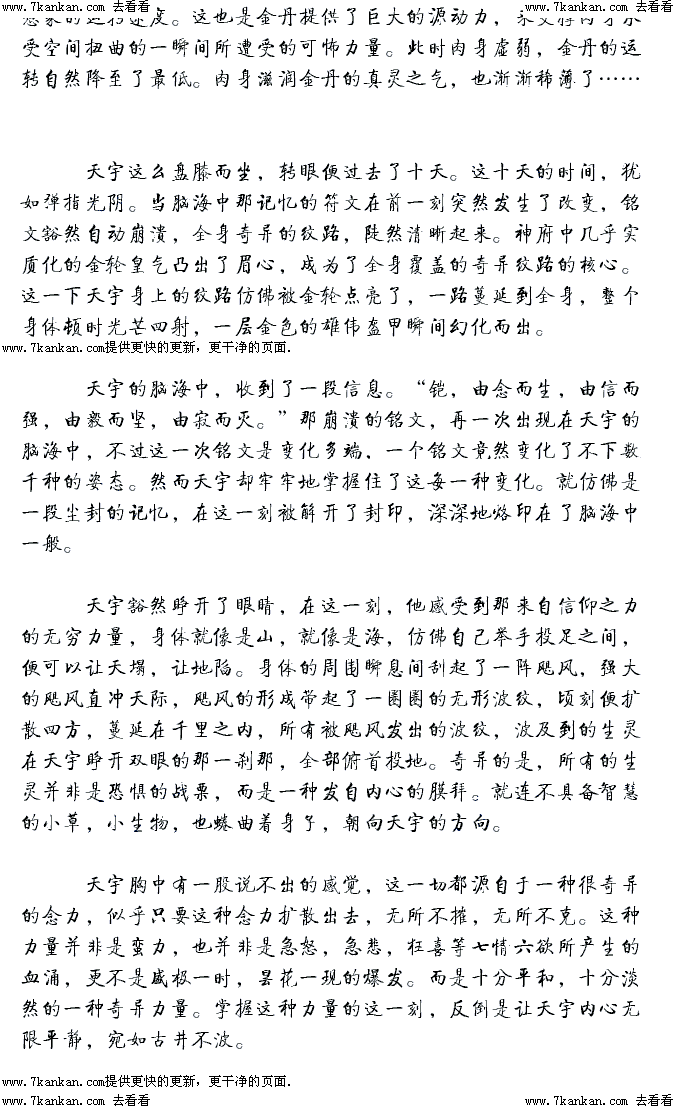 www.7kankan.com 去看看 www.7kankan.com 去看看
转速度。这也是金丹提供了巨大的源动力,来支撑肉身承
受空间扭曲的一瞬间所遭受的可怖力量。此时肉身虚弱,金丹的运
转自然降至了最低。肉身滋润金丹的真灵之气,也渐渐稀薄了……
天宇这么盘膝而坐,转眼便过去了十天。这十天的时间,犹
如弹指光阴。当脑海中那记忆的符文在前一刻突然发生了改变,铭
文豁然自动崩溃,全身奇异的纹路,陡然清晰起来。神府中几乎实
质化的金轮皇气凸出了眉心,成为了全身覆盖的奇异纹路的核心。
这一下天宇身上的纹路仿佛被金轮点亮了,一路蔓延到全身,整个
身体顿时光芒四射,一层金色的雄伟盔甲瞬间幻化而出。
www.7kankan.com提供更快的更新,更干净的页面.
天宇的脑海中,收到了一段信息。“铠,由念而生,由信而
强,由毅而坚,由寂而灭。”那崩溃的铭文,再一次出现在天宇的
脑海中,不过这一次铭文是变化多端,一个铭文竟然变化了不下数
千种的姿态。然而天宇却牢牢地掌握住了这每一种变化。就仿佛是
一段尘封的记忆,在这一刻被解开了封印,深深地烙印在了脑海中
一般。
天宇豁然睁开了眼睛,在这一刻,他感受到那来自信仰之力
的无穷力量,身体就像是山,就像是海,仿佛自己举手投足之间,
便可以让天塌,让地陷。身体的周围瞬息间刮起了一阵飓风,强大
的飓风直冲天际,飓风的形成带起了一圈圈的无形波纹,顷刻便扩
散四方,蔓延在千里之内,所有被飓风发出的波纹,波及到的生灵
在天宇睁开双眼的那一刹那,全部俯首投地。奇异的是,所有的生
灵并非是恐惧的战栗,而是一种发自内心的膜拜。就连不具备智慧
的小草,小生物,也蜷曲着身子,朝向天宇的方向。
天宇胸中有一股说不出的感觉,这一切都源自于一种很奇异
的念力,似乎只要这种念力扩散出去,无所不摧,无所不克。这种
力量并非是蛮力,也并非是急怒,急悲,狂喜等七情六欲所产生的
血涌,更不是盛极一时,昙花一现的爆发。而是十分平和,十分淡
然的一种奇异力量。掌握这种力量的这一刻,反倒是让天宇内心无
限平静,宛如古井不波。
www.7kankan.com提供更快的更新,更干净的页面.
www.7kankan.com 去看看 www.7kankan.com 去看看